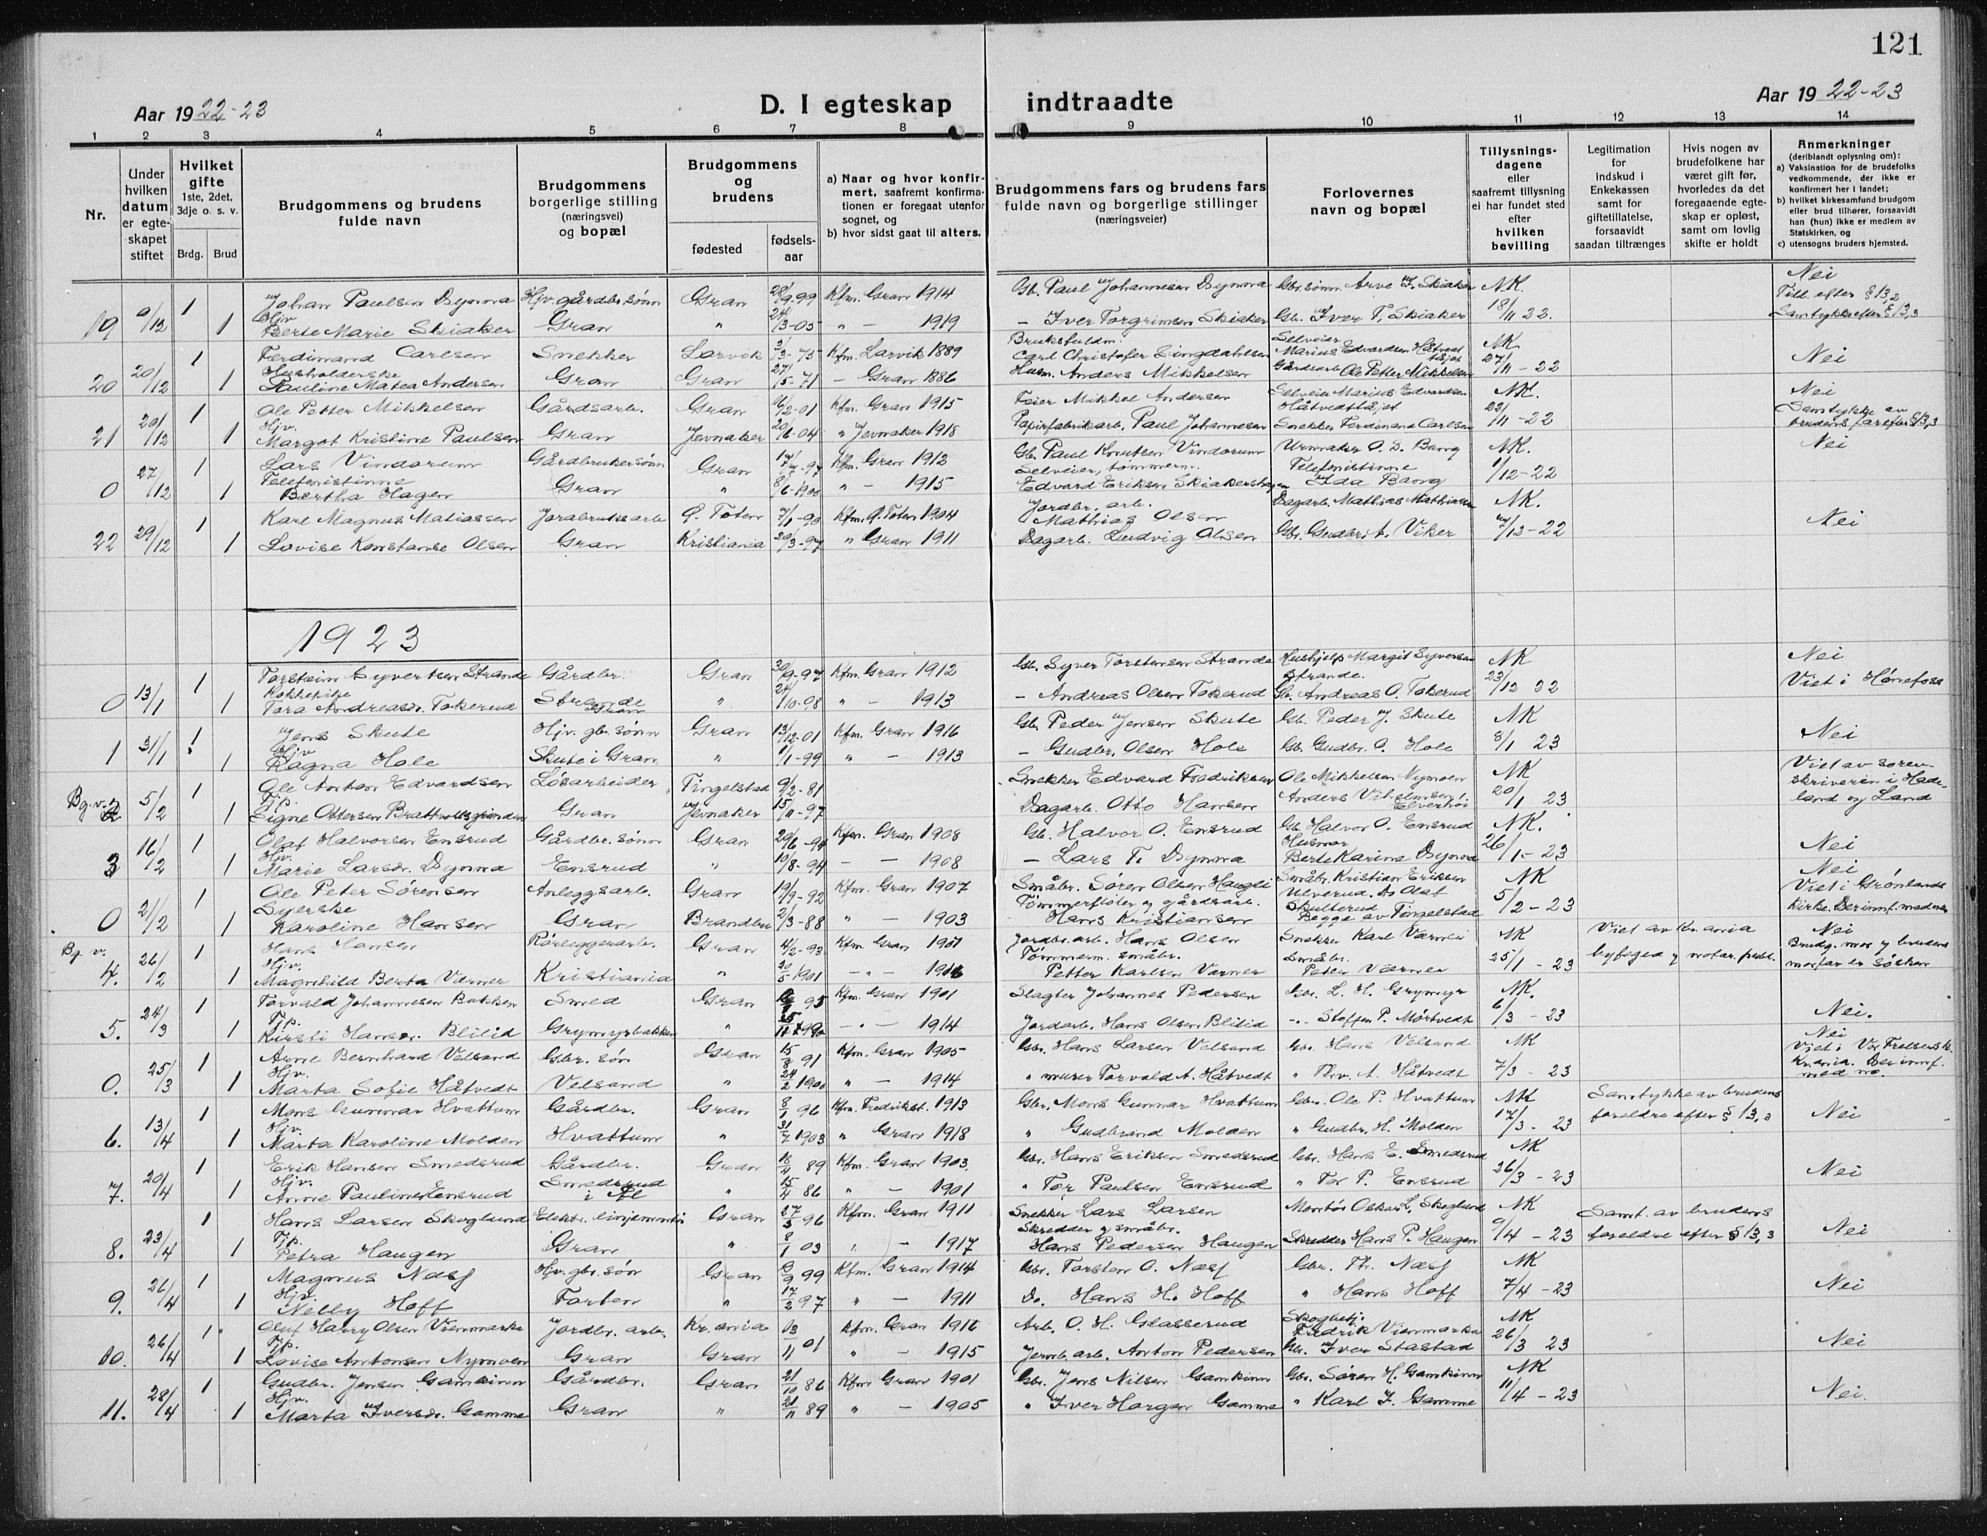 121
Aar 1922-23
D. I egteskap indtraadte
Aar 1922-23
1 2 3 4 5 6 7 8 9 10 11 12 13 14
Nr.
Under hvilken datum er egteskapet stiftet
Hvilket gifte 1ste, 2det, 3dje o. s. v.
Brdg. Brud
Brudgommens og brudens fulde navn
Brudgommens borgerlige stilling (næringsvei) og bopæl
Brudgommens og brudens
fødested
fødselsaar
a) Naar og hvor konfirmert, saafremt konfirmationen er foregaat utenfor sognet, og
b) hvor sidst gaat til alters.
Brudgommens fars og brudens fars fulde navn og borgerlige stillinger (næringsveier)
Forlovernes navn og bopæl
Tillysningsdagene eller saafremt tillysning ei har fundet sted efter hvilken bevilling
Legitimation for indskud i Enkekassen samt for giftetillatelse, forsaavidt saadan tiltrænges
Hvis nogen av brudefolkene har været gift før, hvorledes da det foregaaende egteskap er opløst, samt om lovlig skifte er holdt
Anmerkninger (deriblandt oplysning om):
a) Vaksination for de brudefolks vedkommende, der ikke er konfirmert her i landet;
b) hvilket kirkesamfund brudgom eller brud tilhører, forsaavidt han (hun) ikke er medlem av Statskirken, og
c) utensogns bruders hjemsted.
Johan Paulsen Dynna Hjv. gårdbr. sønn Gran 99 Kfm. Gran 1914 Gb. Paul Johannesen Dynna Gbr. sønn Arve I. Skiaker NK. Nei
19 /12 1 1 Hjv. Berte Marie Skiaker Gran " /3-05 " — 1919 — Iver Torgrimsen Skiaker Gb. Iver T. Skiaker 18/11 22. Till. efter § 13,2 Samtykke efter § 13,3
1 Ferdinand Carlsen Snekker Larvik /3-75 Kfm. Larvik 1889 Bruksfuldm. Carl Christofer Singdahlsen Selveier Marius Edvardsen NK. Nei
20 20/12 1 Husholderske Pauline Matea Andersen Gran Gran 27/5-71 — Gran 1886 Husm. Anders Mikkelsen Gårdsarb. Ole Petter Mikkelsen 27/11-22
1 Ole Petter Mikkelsen Gårdsarb. Gran /2-01 Kfm. Gran 1915 Feier Mikkel Andersen Selveier Marius Edvardsen NK. Nei
21 29/12 1 Hjv. Margot Kristine Paulsen Gran Jevnaker 20/6-04 " Jevnaker 1918 Papirfabrikarb. Paul Johannesen Snekker Ferdinand Carlsen 23/11-22 Samtykke av brudens far efter § 13,3
1 Lars Vindorum Gårdbrukersønn Gran 17/7-97 Kfm. Gran 1912 Gb. Paul Knutsen Vindorum Urmaker O. D. Bang NK. Nei
0 27/12 1 Telefonistinne Bertha Hagen Gran " 8/6-1900 " — 1915 Selveier, tømmerm. Edvard Eriksen Skiakershagen Telefonistinne Ida Bang 1/12-22
1 Karl Magnus Matiassen Jorabruksarb. Ø. Toten 7/1-90 Kfm. Ø. Toten 1904 Jordbr. arb. Mathias Olsen Dagarb. Mathias Mathiassen NK. Nei
22 29/12 1 Lovise Konstanse Olsen Gran Kristiania 20/3-97 " Gran 1911 Dagarb. Ludvig Olsen Gbr. Gudbr. A. Viker /12-22
1923
1 Torstein Syvertsen Strande Gårdbr. Gran 30/9-97 Kfm. Gran 1912 Gb. Syver Torstensen Strande Hushjelp Margit Syversen Strande. NK Nei
0 13/1 1 Kokkepike Tora Andreasdr. Tokerud Strande Gran " /10-98 " — 1913 — Andreas Olsen Tokerud Gb. Andreas O. Tokerud 23/12 22 Viet i Hønefoss
1 Jens Skute Hjv. gb. sønn Gran 13/12-01 Kfm. Gran 1916 Gb. Peder Jensen Skute Gb. Peder J. Skute NK Nei
1 31/1 1 Hjv. Ragna Hole Skute i Gran " 1/1-99 " — 1913 — Gudbr. Olsen Hole Gb. Gudbr. O. Hole 8/1 23
1 Ole Anton Edvardsen Løsarbeider Tingelstad 9/2-81 Snekker Edvard Fredriksen Ole Mikkelsen Nymoen NK Viet av sorenskriveren i Hadeland og Land
Bg. v. 2 5/2 1 Tjp. Signe Ottersen Brattvollseienden Gran Jevnaker 15/11-97 Dagarb. Otto Hansen Anders Vilhelmsen Elverhøi 20/1 23
1 Olaf Halvorsen Ensrud Gårdbr. sønn Gran 20/6-94 Kfm. Gran 1908 Gb. Halvor O. Ensrud Gb. Halvor O. Ensrud NK. Nei
3 16/2 1 Hjv. Marie Larsdr. Dynna Ensrud " 10/8-94 — — 1908 — Lars T. Dynna Husmor Berte Karine Dynna 26/1-23
1 Ole Peter Sørensen Anleggsarb. Gran 19/9-92 Kfm. Gran 1907 Småbr. Søren Olsen Haugli Småbr. Kristian Eriksen Ulverud, NK Nei
0 21/2 1 Syerske Karoline Hansen Gran Brandbu 2/3-88 " — 1903 Tømmerfløter og gårdsarb. Hans Kristiansen Olaf Skulterud Begge av Tingelstad 5/2-23 Viet i Grønlands Kirke.
Bg. v. 1 Hans Hansen Rørleggerarb. Gran 4/2-93 Kfm. Gran 1907 Jordbr. arb. Hans Olsen Snekker Karl Værnes NK Viet av Kr.ania byfoged Nei
4. 26/2 1 Hjv. Magnhild Berta Værner Kristiania " 20/5-1901 " — 1916 Tømmerm. småbr. Petter Karlsen Værner Småbr. Peter Værner 25/1-23 Brudg. mor og brudens morfar er søsken
1 Torvald Johannesen Bakken Smed Gran 95 Kfm. Gran 1901 Slagter Johannes Pedersen Gbr. L. H. Grymyr NK. Nei.
5. 24/3 1 Tjp. Kirsti Hansdr. Blilid Grymyrbakken " " — 1914 Jordarb. Hans Olsen Blilid " Steffen P. Mørtvedt 6/3-23
1 Arne Bernhard Velsand Gbr. søn Gran 15/8 91 Kfm. Gran 1905 Gbr. Hans Larsen Velsand Gbr. Hans Velsand NK Nei
0. 25/3 1 Hjv. Marta Sofie Håtvedt Velsand " 24/2 1900 " — 1914 " murer Torvald A. Håtvedt " Thv. A. Håtvedt 7/3-23 Viet i Vor Frelsersk. Kr.ania.
1 Mons Gunnar Hvattum Gårdbr. Gran 8/1 96 Kfm. Fredrikst. 1913 Gbr. Mons Gunnar Hvattum Gbr. Ole P. Hvattum NK Samtykke av brudens foreldre efter § 13,3 Nei
6. 13/4 1 Hjv. Marta Karoline Molden Hvattum " 31/7 1903 " Gran 1918 " Gudbrand Molden " Gudbr. H. Molden 17/3-23
1 Erik Hansen Smedsrud Gårdbr. Gran 18/4 89 Kfm. Gran 1903. Gbr. Hans Eriksen Smedsrud Gbr. Hans E. Smedsrud NK Nei
7. 20/4 1 Hjv. Anne Pauline Ensrud Smedsrud i Ål " 15/4 86 " — 1901 " Tor Paulsen Ensrud " Tor P. Ensrud 26/3-23
1 Hans Larsen Skoglund Elektr. linjemontør Gran 27/5 96 Kfm. Gran 1911 Snekker Lars Larsen Montør Oskar L. Skoglund NK Samt. av brudens foreldre efter § 13,3 Nei
8. 23/4 1 Tjp. Petra Haugen Gran " 8/1 03 " — 1917 Skredder og småbr. Hans Pedersen Haugen Skredder Hans P. Haugen 9/4-23
1 Magnus Næss Hjv. gbr. søn Gran /9 99 Kfm. Gran 1914 Gbr. Torsten O. Næss Gbr. Th. Næss NK Nei
9. 26/4 1 Hjv. Nelly Hoff Farten " 17/2 97 " — 1911 Do. Hans H. Hoff " Hans Hoff 7/4-23
1 Oluf Harry Olsen Vienmarka Jordbr. arb. Kr.ania Kfm. Gran 1916 Arb. O. H. Glasserud Skogbetj. Fredrik Vienmarka NK Nei
10. 26/4 1 Tjp. Lovise Antonsen Nymoen Gran Gran /11 01 " — 1915 Jernb. arb. Anton Pedersen Gb. Iver Stastad 26/3 23
1 Gudbr. Jensen Gamkinn Gårdbr. Gran 21/10 86 Kfm Gran 1901 Gbr. Jens Nilsen Gamkinn Gbr. Søren H. Gamkinn NK Nei.
11. 28/4 1 Hjv. Marta Iversdr. Gamme Gran " 21/11 89 " — 1905 " Iver Horgen Gamme " Karl I. Gamme 11/4-23